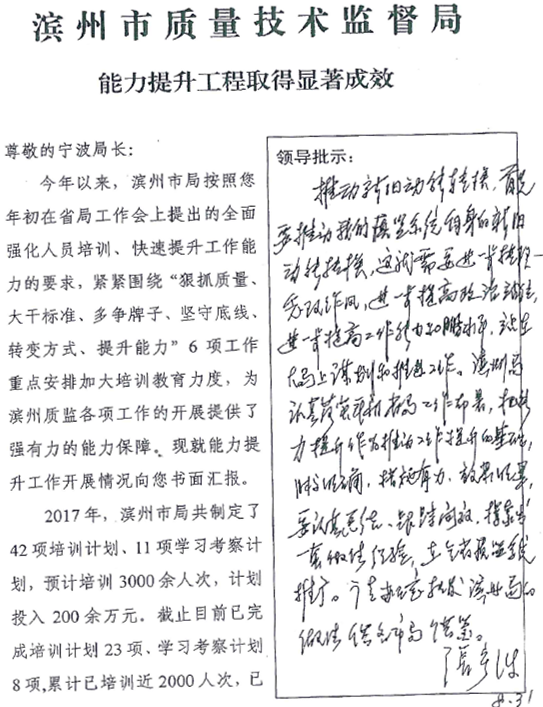 滨州市质量技术监督局
能力提升工程取得显著成效
尊敬的宁波局长：
今年以来，滨州市局按照您
年初在省局工作会上提出的全面
强化人员培训、快速提升工作能
力的要求，紧紧围绕“狠抓质量、
大干标准、多争牌子、坚守底线、
转变方式、提升能力”6 项工作
重点安排加大培训教育力度，为
滨州质监各项工作的开展提供了
强有力的能力保障。现就能力提
升工作开展情况向您书面汇报。
2017 年，滨州市局共制定了
42 项培训计划、11 项学习考察计
划，预计培训 3000 余人次，计划
投入 200 余万元。截止目前已完
成培训计划 23 项、学习考察计划
8 项,累计已培训近 2000 人次，已
领导批示：
推动新旧动能转换，首先
要推动我们质监系统自身的新旧
动能转换，这就需要进一步转
作风，进一步提高政治
进一步提高工作能力和水平，
谋划和推进工作。滨州局
认真落实省局工作布署，把能
力提升作为推动工作提升的基础，
措施有力，效果明显，
要认真总结、跟踪问效，探索出
一套做法经验，在全省质监系统
推广。请办公室批发滨州局
做法供各市局借鉴。
宁波
8.31